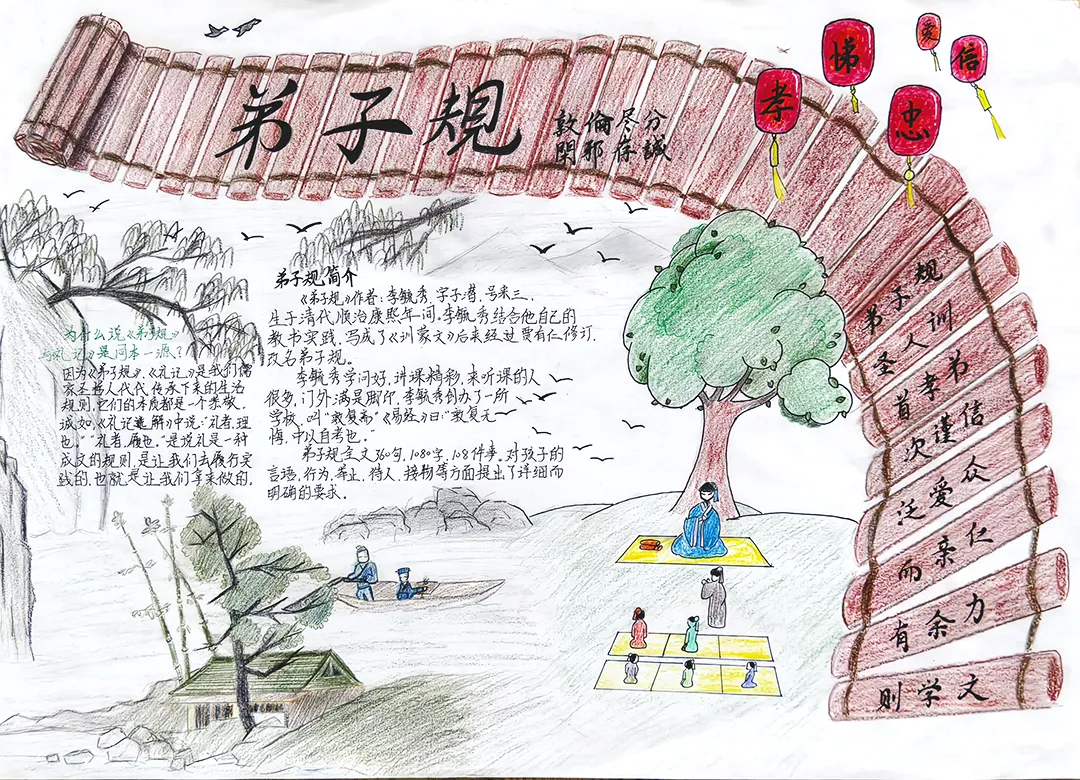 弟子規
敦倫尽分
閑邪存誠
孝
悌
爱
信
忠
弟子规简介
《弟子规》作者:李毓秀,字子潜,号采三.
生于清代顺治康熙年间.李毓秀结合他自己的
教书实践,写成了《训蒙文》后来经过贾有仁修订,
改名弟子规。
李毓秀学问好,讲课精彩,来听课的人
很多,门外满是脚印,李毓秀创办了一所
学校,叫"敦复斋"《易经》曰:"敦复无
悔,中以自考也."
弟子规全文360句,1080字,108件事,对孩子的
言语,行为,举止,待人,接物等方面提出了详细而
明确的要求.
为什么说《弟子规》
与《礼记》是同本一源?
因为《弟子规》,《礼记》是我们儒
家圣贤人代代传承下来的生活
规则,它们的本质都是一个恭敬,
诚如,《礼记 解》中说:"礼者,理
也.""礼者,履也."是说礼是一种
成文的规则,是让我们去履行实
践的,也就是让我们拿来做的.
弟子规
圣人训
首孝弟
次谨信
泛爱众
而亲仁
有余力
则学文